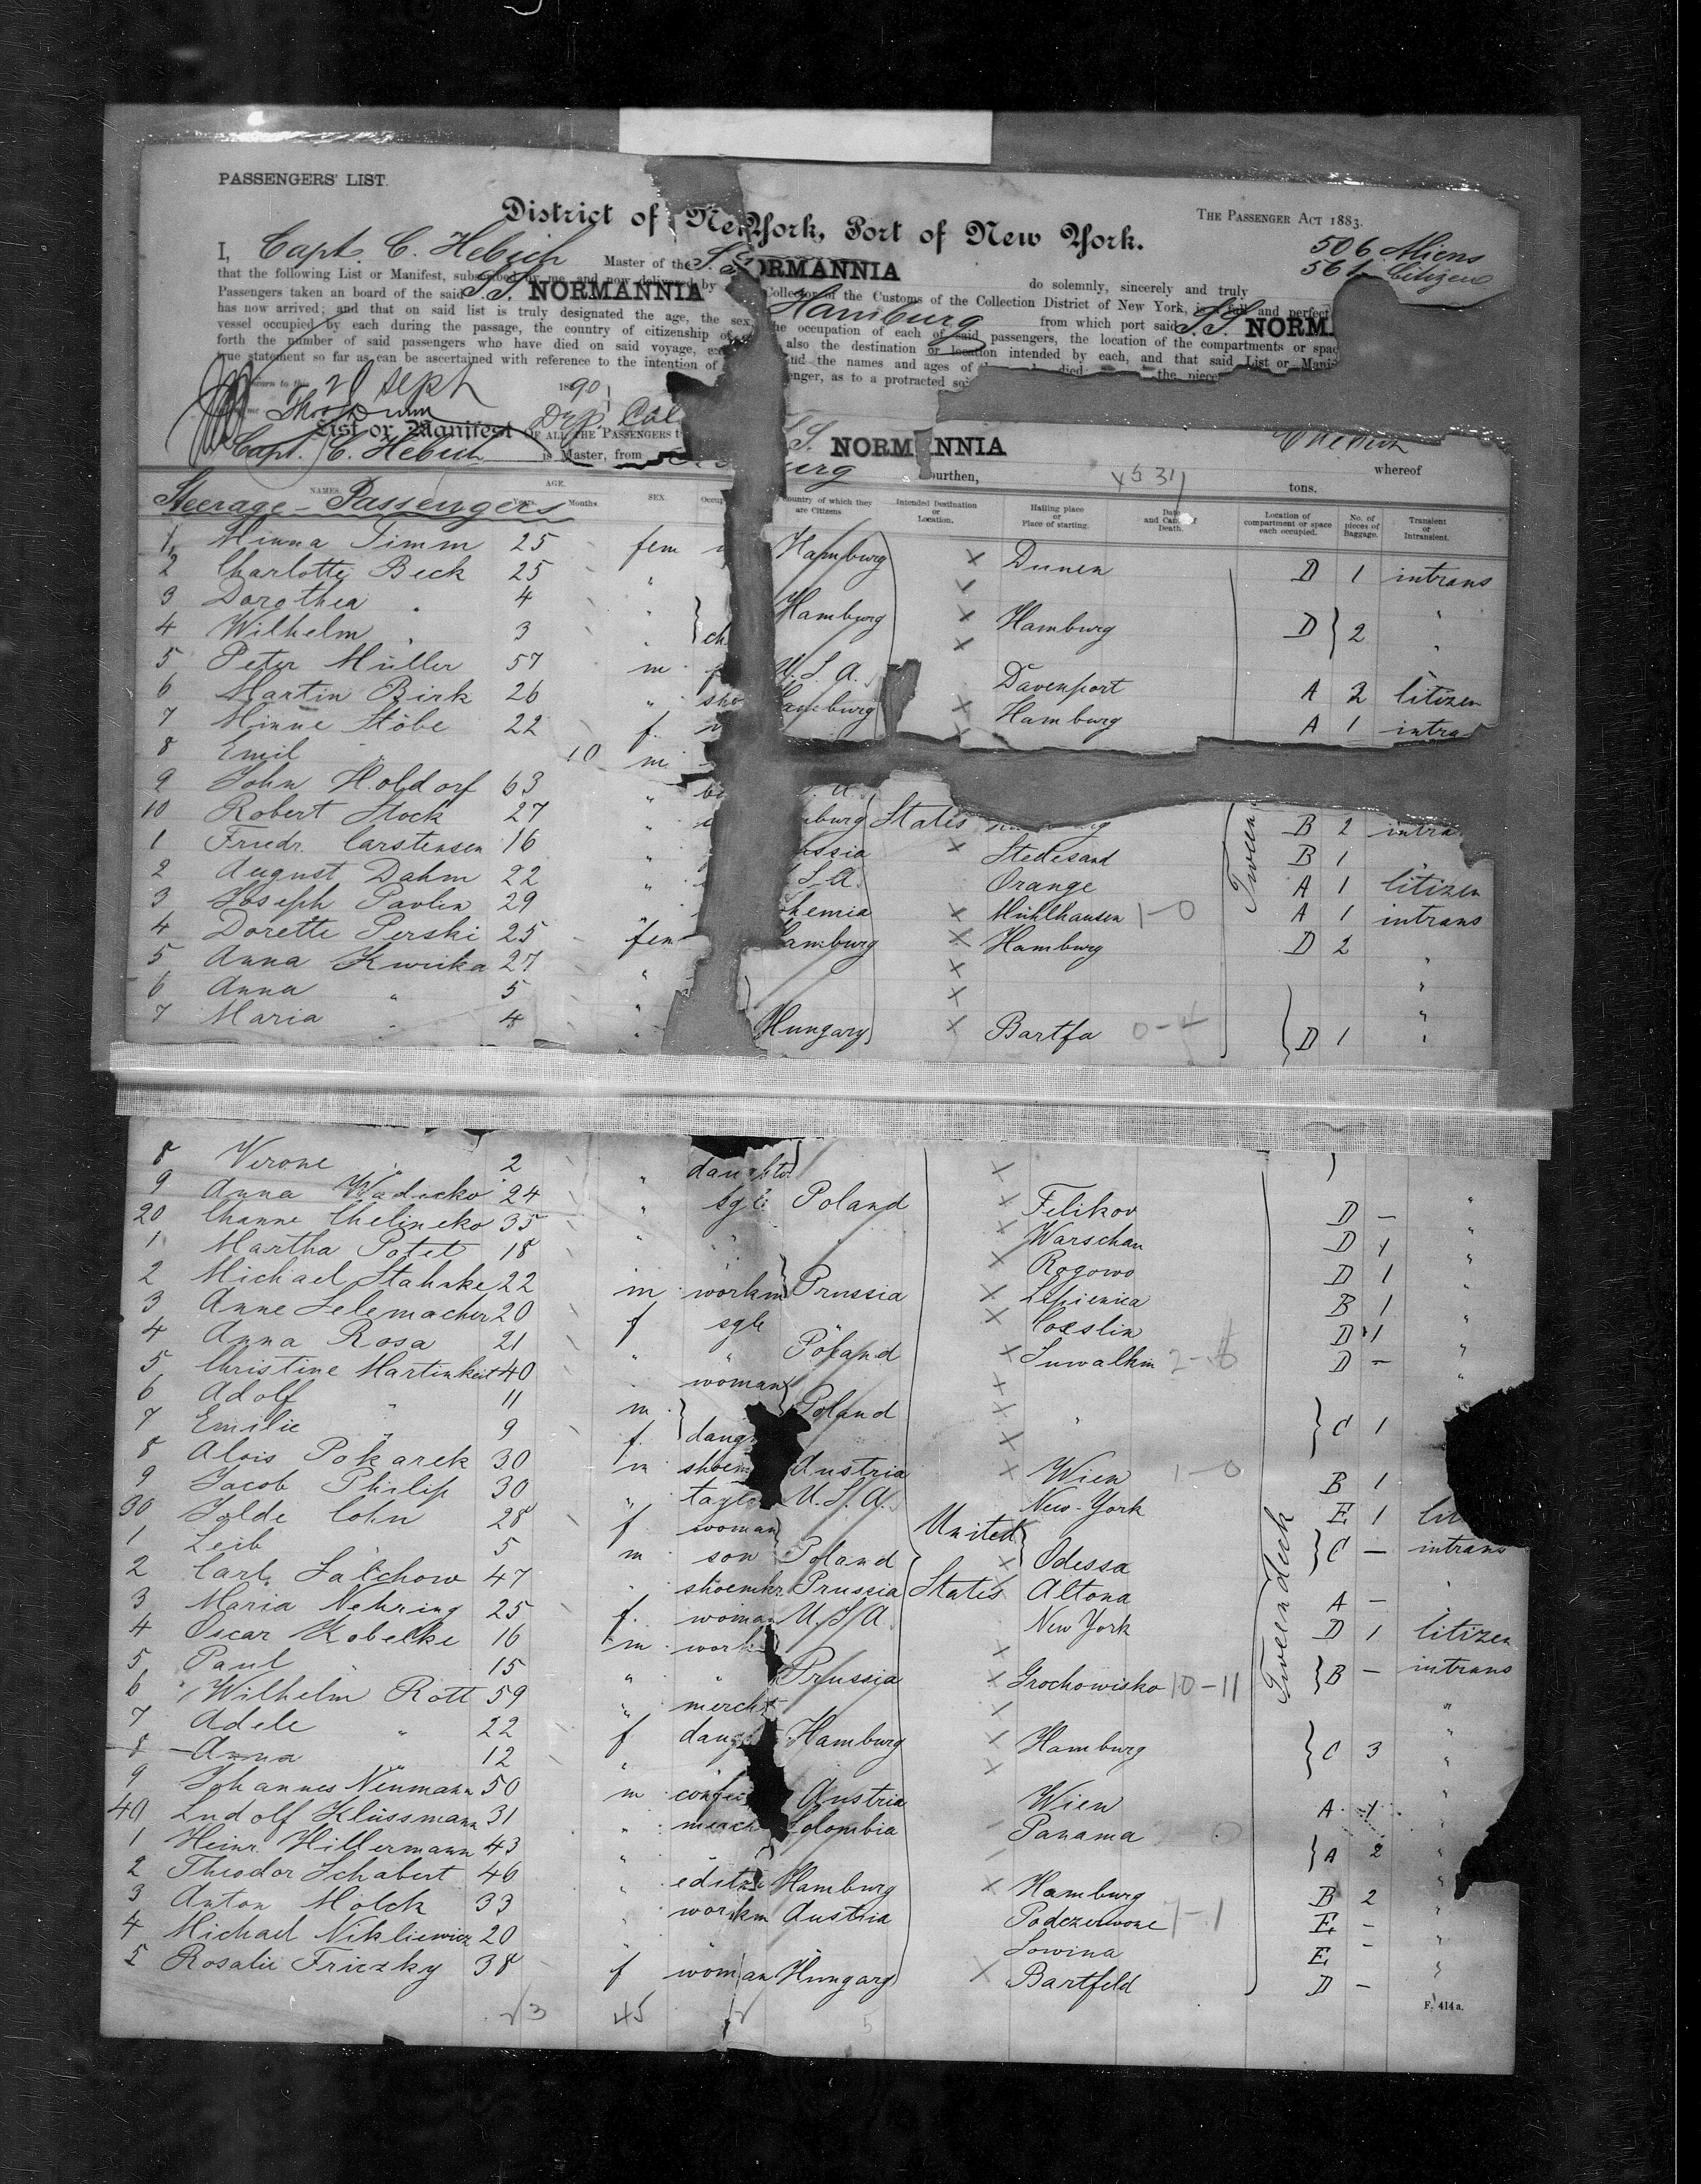 PASSENGERS' LIST.
THE PASSENGER ACT 1883.
District of New York, Port of New York.
506 Aliens
Citizens
I, Capt. C. Hebich Master of the S.S. NORMANNIA do solemnly, sincerely and truly
that the following List or Manifest, subscribed by me and now delivered by Collector of the Customs of the Collection District of New York, is a full and perfect
Passengers taken an board of the said S.S. NORMANNIA Hamburg from which port said S.S. NORM
has now arrived; and that on said list is truly designated the age, the sex, the occupation of each of said passengers, the location of the compartments or spac
vessel occupied by each during the passage, the country of citizenship of also the destination or location intended by each, and that said List or Mani
forth the number of said passengers who have died on said voyage, and the names and ages of died
true statement so far as can be ascertained with reference to the intention of enger, as to a protracted so
Sworn to this 20 Sept 1890
List or Manifest OF ALL THE PASSENGERS S.S. NORMANNIA
Capt. C. Hebich is Master, from burthen, whereof
tons.
NAMES. AGE. Years. Months. SEX. Occup Country of which they are Citizens Intended Destination or Location. Hailing place or Place of starting. Date and Cause of Death. Location of compartment or space each occupied. No. of pieces of Baggage. Transient or Intransient.
Steerage-Passengers
1 Minna Timm 25 fem Hamburg Dunen D 1 intrans
2 Charlotte Beck 25 "
3 Dorothea " 4 " Hamburg Hamburg D 2 "
4 Wilhelm " 3 " ch "
5 Peter Müller 57 m U.S.A. Davenport A 2 Citizen
6 Martin Birk 26 " sho Hamburg Hamburg A 1 intra
7 Minne Stöbe 22 f.
8 Emil " 10 m
9 John Holdorf 63 "
10 Robert Stock 27 " burg States B 2 intra
1 Friedr. Carstensen 16 " ssia Stedesand B 1
2 August Dahm 22 " S.A. Orange A 1 Citizen
3 Joseph Pavlen 29 " hemia Mühlhausen 1-0 A 1 intrans
4 Dorette Perski 25 fem Hamburg Hamburg D 2
5 Anna Kwika 27 " "
6 Anna " 5 " "
7 Maria " 4 " Hungary Bartfa D 1 "
8 Verone " 2 " daughter
9 Anna Wadicko 24 " sgl Poland Felikov D - "
20 Channe Chelineko 35 " " " Warschau D 1 "
1 Martha Potet 18 " Rogowo D 1 "
2 Michael Stahnke 22 m workm Prussia B 1 "
3 Anne Lelemacher 20 f sgle Coeslin D 1 "
4 Anna Rosa 21 " " Poland Suwalkin D - "
5 Christine Martinkeit 40 " woman "
6 Adolf " 11 m Poland " C 1
7 Emilie " 9 f. daugh
8 Alois Pokarek 30 m shoem Austria Wien 1-0 B 1
9 Jacob Philip 30 " taylo U.S.A. New-York E 1
30 Jolde Cohn 28 f woman United
1 Leib " 5 m son Poland Odessa C - intrans
2 Carl Salchow 47 " shoemkr Prussia States Altona A - "
3 Maria Nehring 25 f. woman U.S.A. New York D 1 Citizen
4 Oscar Kobelke 16 m work
5 Paul " 15 " " Prussia Grochowisko 10-11 B - intrans
6 Wilhelm Rott 59 " mercht "
7 Adele " 22 f daug Hamburg Hamburg C 3 "
8 Anna " 12 " "
9 Johannes Neumann 50 m confec Austria Wien A 1 "
40 Ludolf Klüssmann 31 " merch Colombia Panama "
1 Heinr. Hillermann 43 " A 2 "
2 Theodor Schabert 46 " editor Hamburg Hamburg B 2 "
3 Anton Molck 33 " workm Austria Podczerwone 1-1 E - "
4 Michael Nikliewicz 20 " " " Lowina E - "
5 Rosalie Friczky 38 f woman Hungary Bartfeld D - "
45
F. 414a.